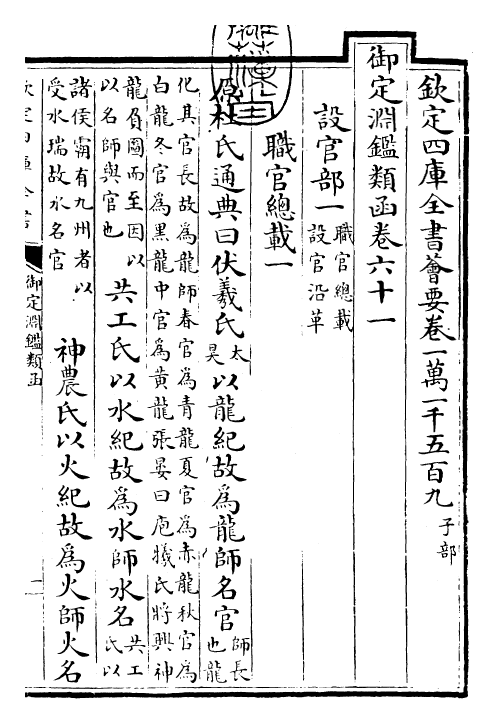 欽定四庫全書薈要卷一萬一千五百九 子部
御定淵鑑類函卷六十一
設官部一 職官總載 設官沿革
職官總載一
原杜氏通典曰伏羲氏 太昊 以龍紀故為龍師名官 師長也龍
化其官長故為龍師春官為青龍夏官為赤龍秋官為
白龍冬官為黑龍中官為黃龍張晏曰庖犧氏將興神
龍負圖而至因以以名師與官也 共工氏以水紀故為水師水名 共工氏以
諸侯霸有九州者以受水瑞故水名官 神農氏以火紀故為火師火名
御定淵鑑類函
一